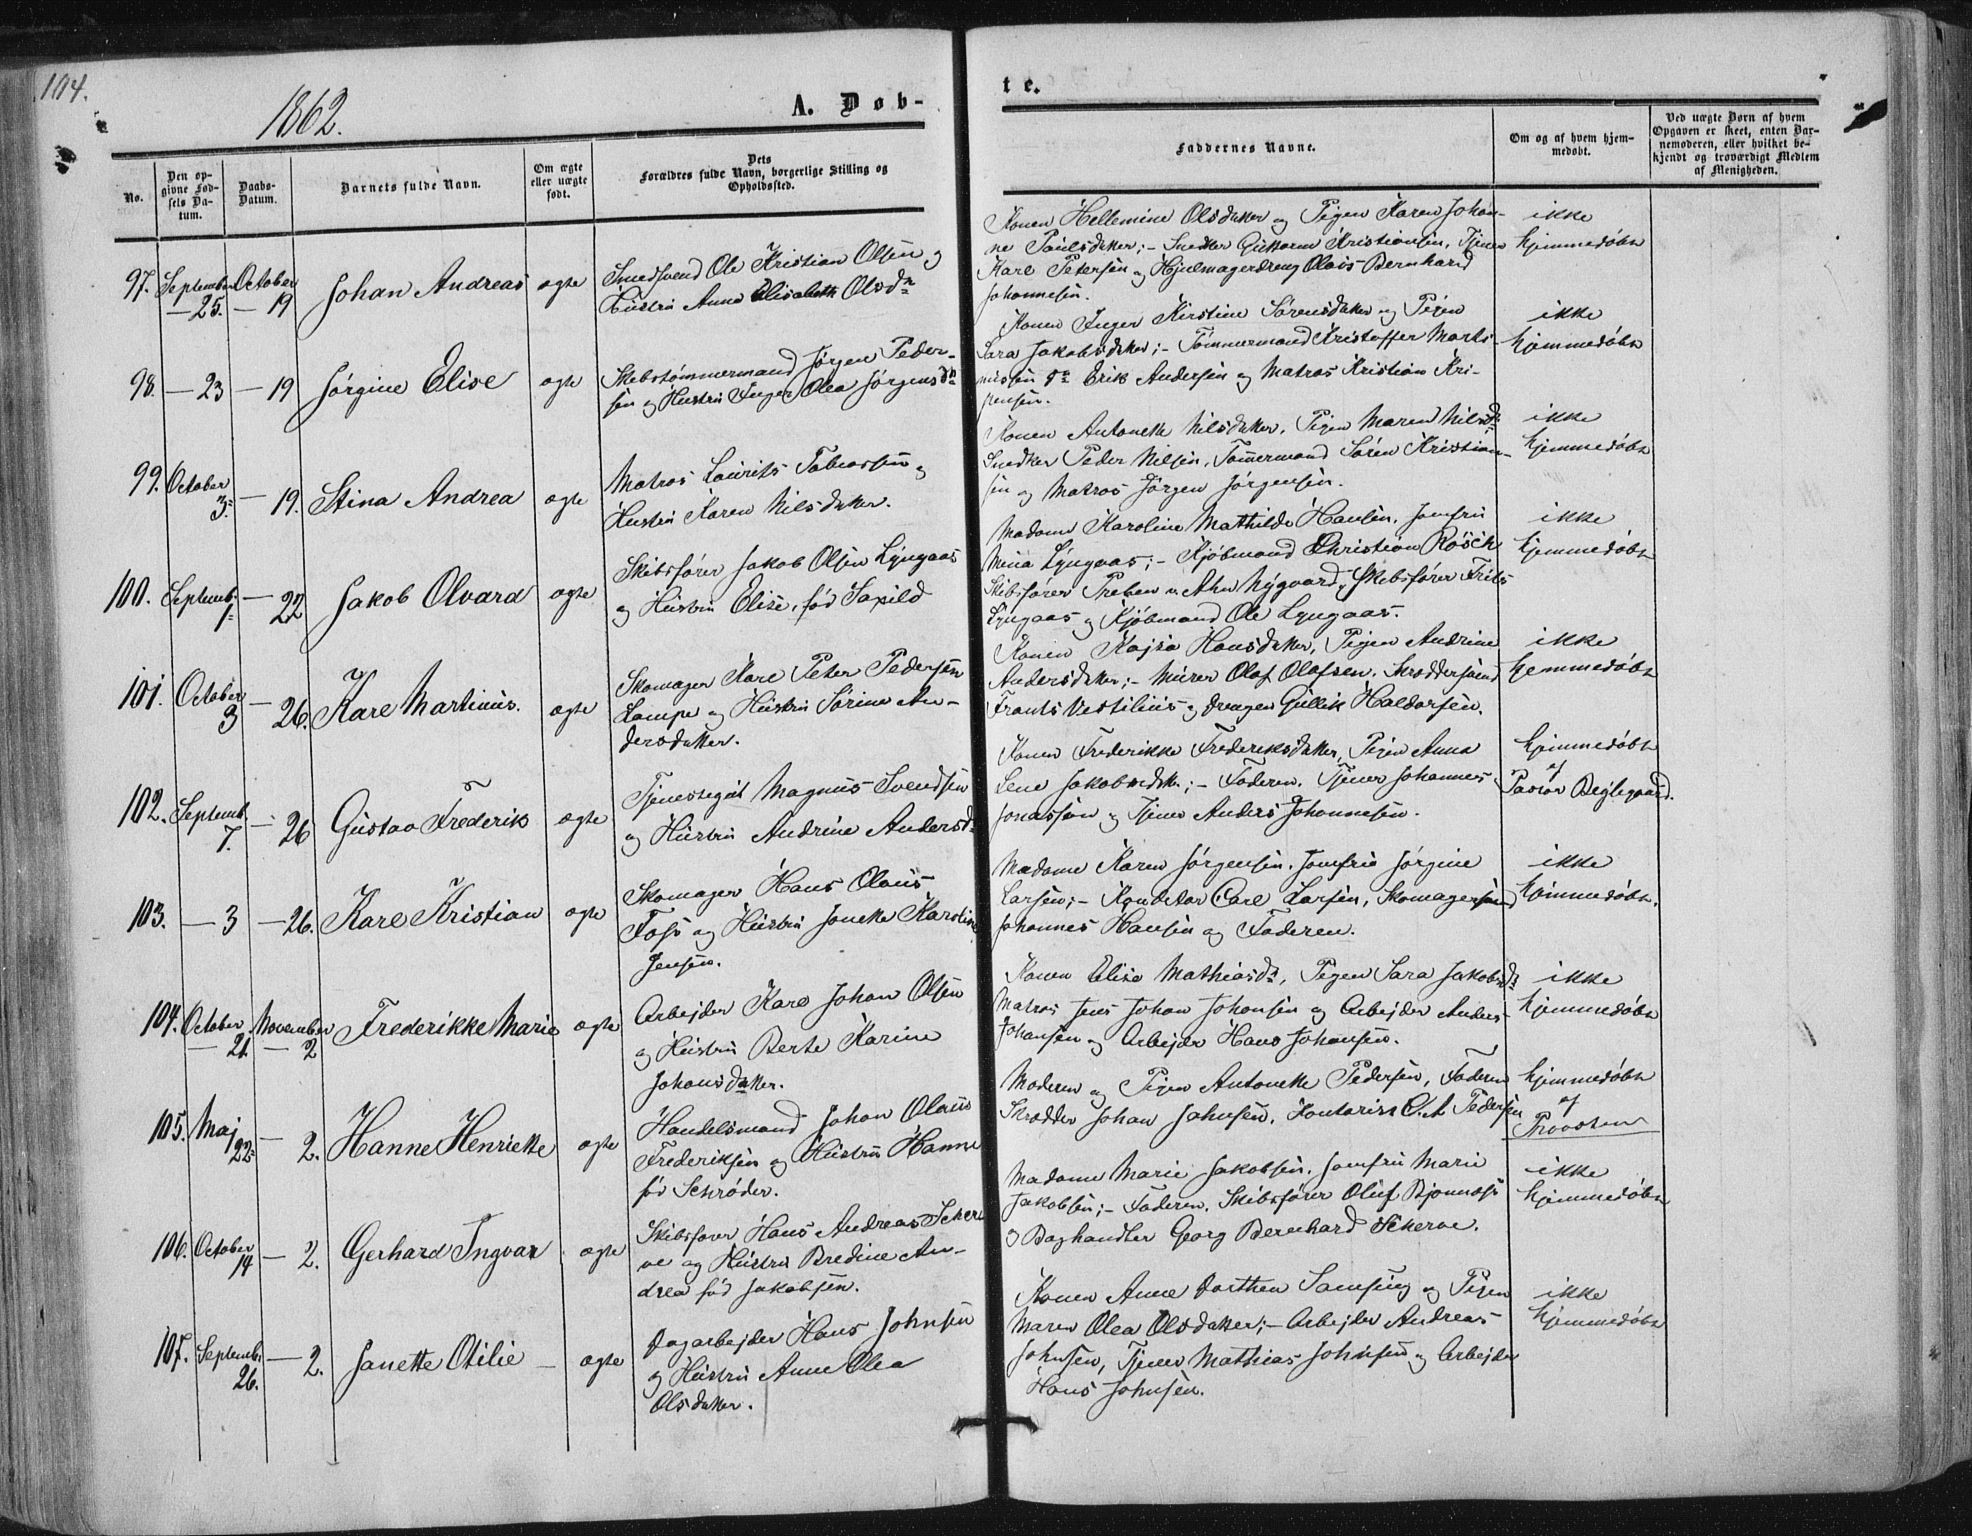 104.
1862.
A. Døb-
No.
Den op-
givne Fød-
sels Da-
tum.
Daabs-
Datum.
Barnets fulde Navn.
Om ægte
eller uægte
født.
Dets
Forældres fulde Navn, borgerlige Stilling og
Opholdssted.
97. September October Johan Andreas ægte Smedsvend Ole Kristian Olsen og
— 25. — 19 Hustru Anne Elisabeth Olsdr
98. — 23 — 19 Jørgine Elise ægte Skibstømmermand Jørgen Peder-
sen og Hustru Inger Olea Jørgensdr
99. October
3. — 19. Stina Andrea ægte Matros Laurits Tobiassen og
Hustru Karen Nilsdatter.
100. Septemb.
1. — 22 Jakob Olvard ægte Skibsfører Jakob Olsen Lyngaas
og Hustru Elise, fød Saxild
101. October
3 — 26. Karl Martinius. ægte Skomager Karl Peter Pedersen
Lampe og Hustru Sørine An-
dersdatter.
102. Septemb.
7. — 26 Gustav Frederik ægte Tjenestegut Magnus Svendsen
og Hustru Andrine Andersd.
103. — 3 — 26. Karl Kristian ægte Skomager Hans Olaus
Foss og Hustru Jonette Karoline
Jensen.
104. October November Frederikke Marie ægte Arbejder Karl Johan Olsen
— 21. — 2 og Hustru Berte Karine
Johansdatter.
105. Maj
22. — 2. Hanne Henriette ægte Handelsmand Johan Olaus
Frederiksen og Hustru Hanne
fød Schrøder.
106. October
14 — 2. Gerhard Ingvar ægte Skibsfører Hans Andreas Scher
ve og Hustru Bredine An-
drea fød Jakobsen.
107. Septemb.
26. — 2. Janette Otilie — ægte Dagarbejder Hans Johnsen
og Hustru Anne Olea
Olsdatter.
te.
Faddernes Navne.
Om og af hvem hjem-
medøbt.
Ved uægte Børn af hvem
Opgaven er skeet, enten Bar-
nemoderen, eller hvilket be-
kjendt og troværdigt Medlem
af Menigheden.
Konen Hellemine Olsdatter og Pigen Karen Johan- ikke
ne Paulsdatter; — Snedker Guttorm Kristiansen, Tjener hjemmedøbt
Karl Petersen og Hjulmagerdreng Olais Bernhard
Johannesen.
Konen Inger Kirstine Sørensdatter og Pigen ikke
Sara Jakobsdatter; — Tømmermand Kristoffer Marti- hjemmedøbt
niussen, do Erik Andersen og Matros Kristian Kri-
stensen.
Konen Antonette Nilsdatter, Pigen Maren Nilsdr ikke
Snedker Peder Nilsen, Tømmermand Søren Kristian- hjemmedøbt
sen og Matros Jørgen Jørgensen.
Madame Karoline Mathilde Hansen, Jomfru ikke
Mina Lyngaas; — Kjøbmand Christian Rosch hjemmedøbt
Skibsfører Preben v. Ahn Nygaard, Skibsfører Frits
Lyngaas og Kjøbmand Ole Lyngaas.
Konen Kajsa Hansdatter, Pigen Andrine ikke
Andersdatter; — Murer Olaf Olafsen, Skræddersvend hjemmedøbt
Frants Vestilius og Drengen Gullik Haldorsen.
Konen Frederikke Frederiksdatter, Pigen Anna hjemmedøbt
Lene Jakobsdtr; — Faderen, Tjener Johannes af
Jonassen og Tjener Anders Johannesen. Pastor Bejlegaard.
Madame Karen Jørgensen, Jomfru Jørgine ikke
Larsen; — Konditor Carl Larsen, Skomagersvend hjemmedøbt.
Johannes Hansen og Faderen.
Konen Elise Mathiasdr, Pigen Sara Jakobsdr ikke
Matros Jens Johan Johansen og Arbejder Anders hjemmedøbt
Johansen og Arbejder Hans Johansen.
Moderen og Pigen Antonette Pedersen, Faderen hjemmedøbt
Skrædder Johan Johnsen, Kontorist C. A. Pedersen af
Provsten
Madame Marie Jakobsen, Jomfru Marie ikke
Jakobsen; — Faderen, Skibsfører Oluf Bjonnæss hjemmedøbt
og Boghandler Georg Bernhard Scherve.
Konen Anne Dorthea Samsing og Pigen ikke
Maren Olea Olsdatter; — Arbejder Andreas hjemmedøbt
Johnsen, Tjener Mathias Johnsen og Arbejder
Hans Johnsen.